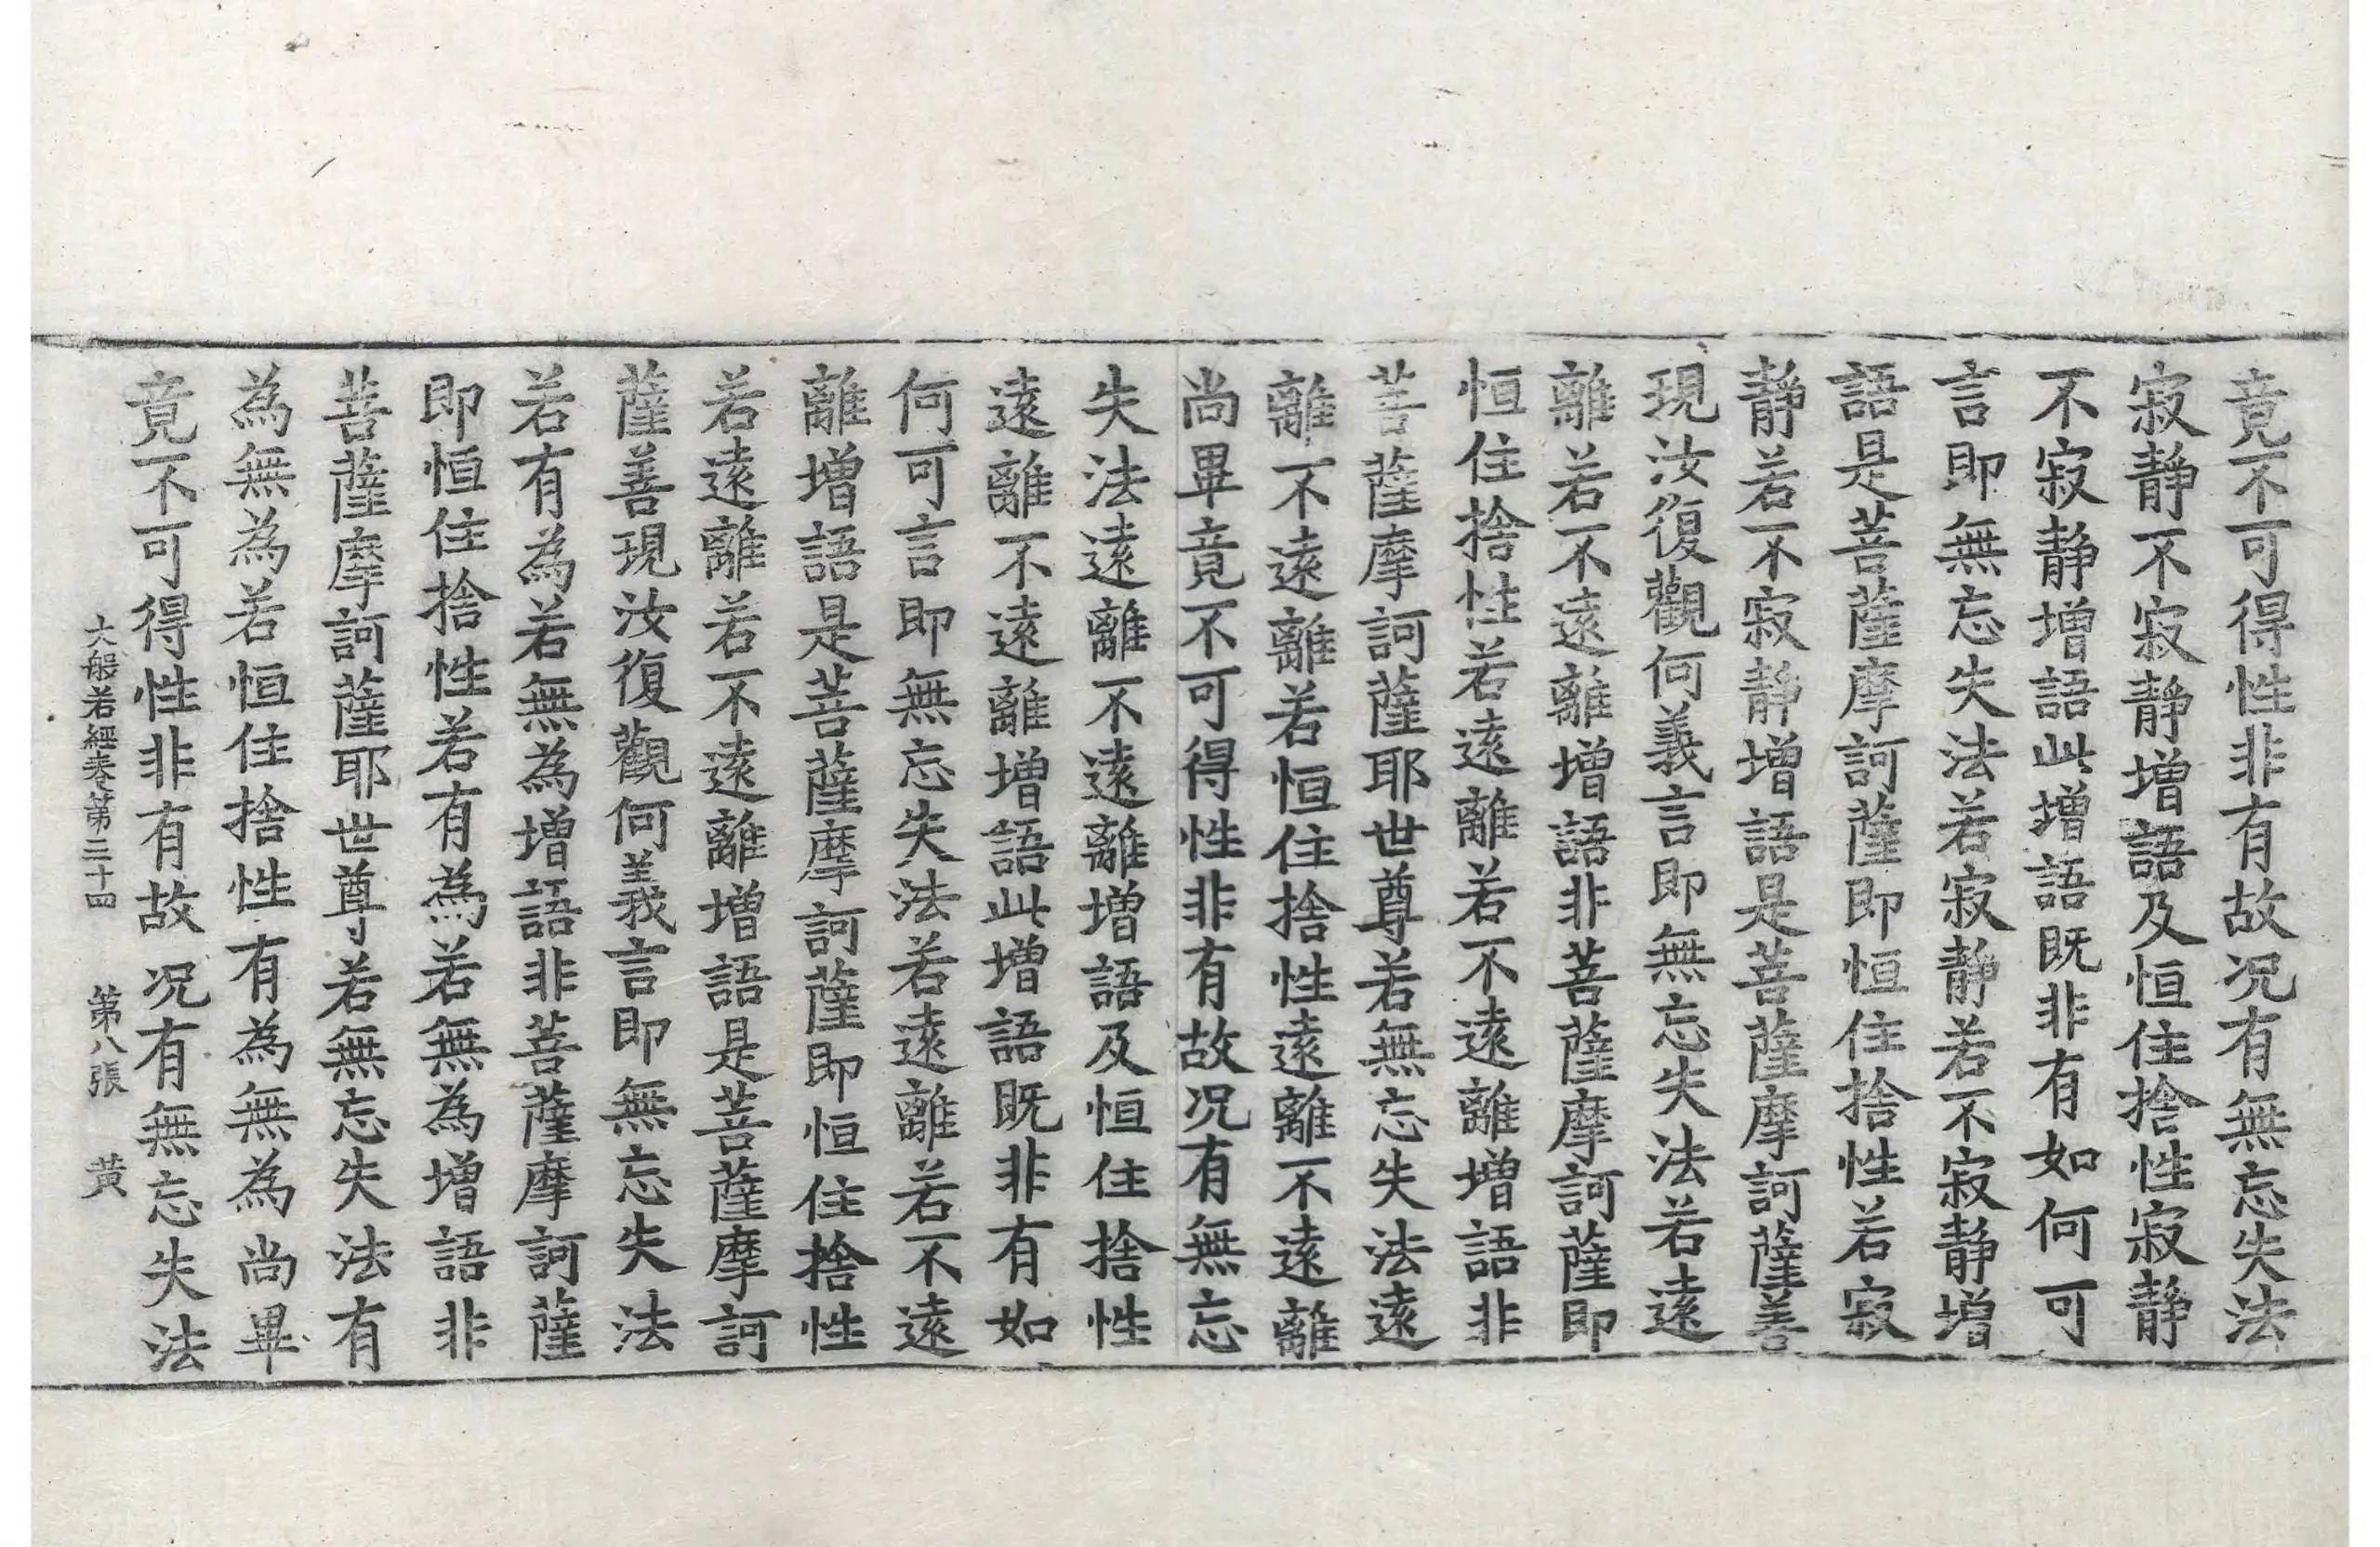 竟不可得性非有故况有無忘失法
寂靜不寂靜增語及恒住捨性寂靜
不寂靜增語此增語既非有如何可
言即無忘失法若寂靜若不寂靜增
語是菩薩摩訶薩即恒住捨性若寂
靜若不寂靜增語是菩薩摩訶薩善
現汝復觀何義言即無忘失法若遠
離若不遠離增語非菩薩摩訶薩即
恒住捨性若遠離若不遠離增語非
菩薩摩訶薩耶世尊若無忘失法遠
離不遠離若恒住捨性遠離不遠離
尚畢竟不可得性非有故况有無忘
失法遠離不遠離增語及恒住捨性
遠離不遠離增語此增語既非有如
何可言即無忘失法若遠離若不遠
離增語是菩薩摩訶薩即恒住捨性
若遠離若不遠離增語是菩薩摩訶
薩善現汝復觀何義言即無忘失法
若有為若無為增語非菩薩摩訶薩
即恒住捨性若有為若無為增語非
菩薩摩訶薩耶世尊若無忘失法有
為無為若恒住捨性有為無為尚畢
竟不可得性非有故况有無忘失法
大般若經卷第三十四 第八張 黃